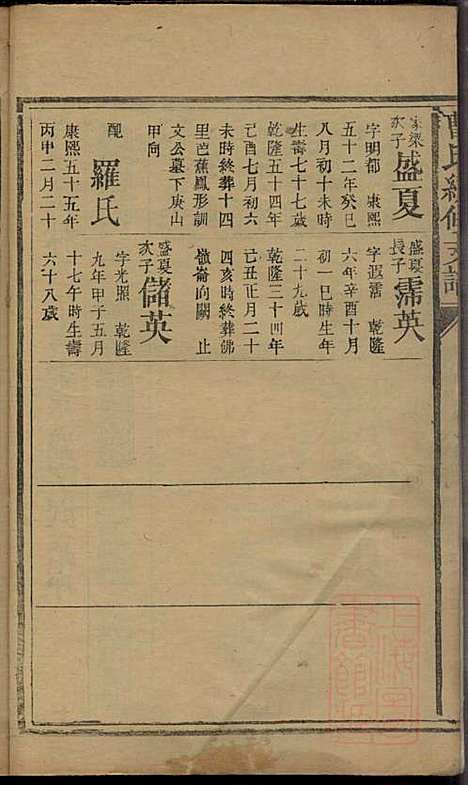 曹氏續修支譜
家梁次子 盛夏
字明都 康熙
五十二年癸巳
八月初十未時
生壽七十七歲
乾隆五十四年
己酉七月初六
未時終葬十四
里芭蕉鳳形訓
文公墓下庚山
甲向
配 羅氏
康熙五十五年
丙申二月二十
盛夏長子 霈英
字遐霑 乾隆
六年辛酉十月
初一巳時生年
二十九歲
乾隆三十四年
己丑正月二十
四亥時終葬佛
嶺崙向闕 止
盛夏次子 儲英
字光照 乾隆
九年甲子五月
十七午時生壽
六十八歲
上海圖書館藏